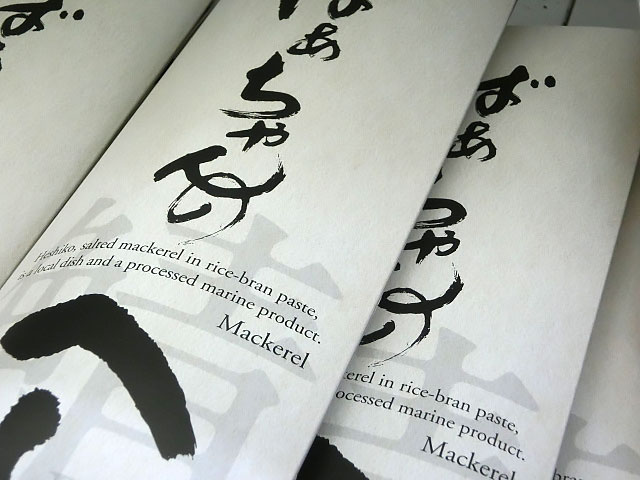 ばあちゃんの
Heshiko, salted mackerel in rice-bran paste,
is a local dish and a processed marine product.
Mackerel
へ
ばあちゃんの
erel in rice-bran paste,
ocessed marine product.
Mackerel